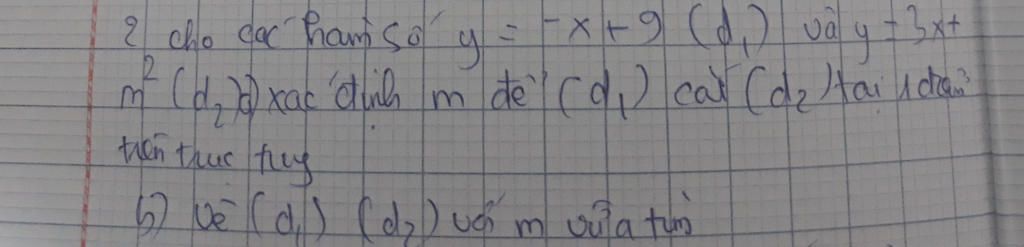 2 cho các hàm số y = -x+9 (d₁) và y = 3x+
m² (d₂) a) xác định m để (d₁) cắt (d₂) tại 1 điểm
trên trục tung
b) Vẽ (d₁) (d₂) với m vừa tìm